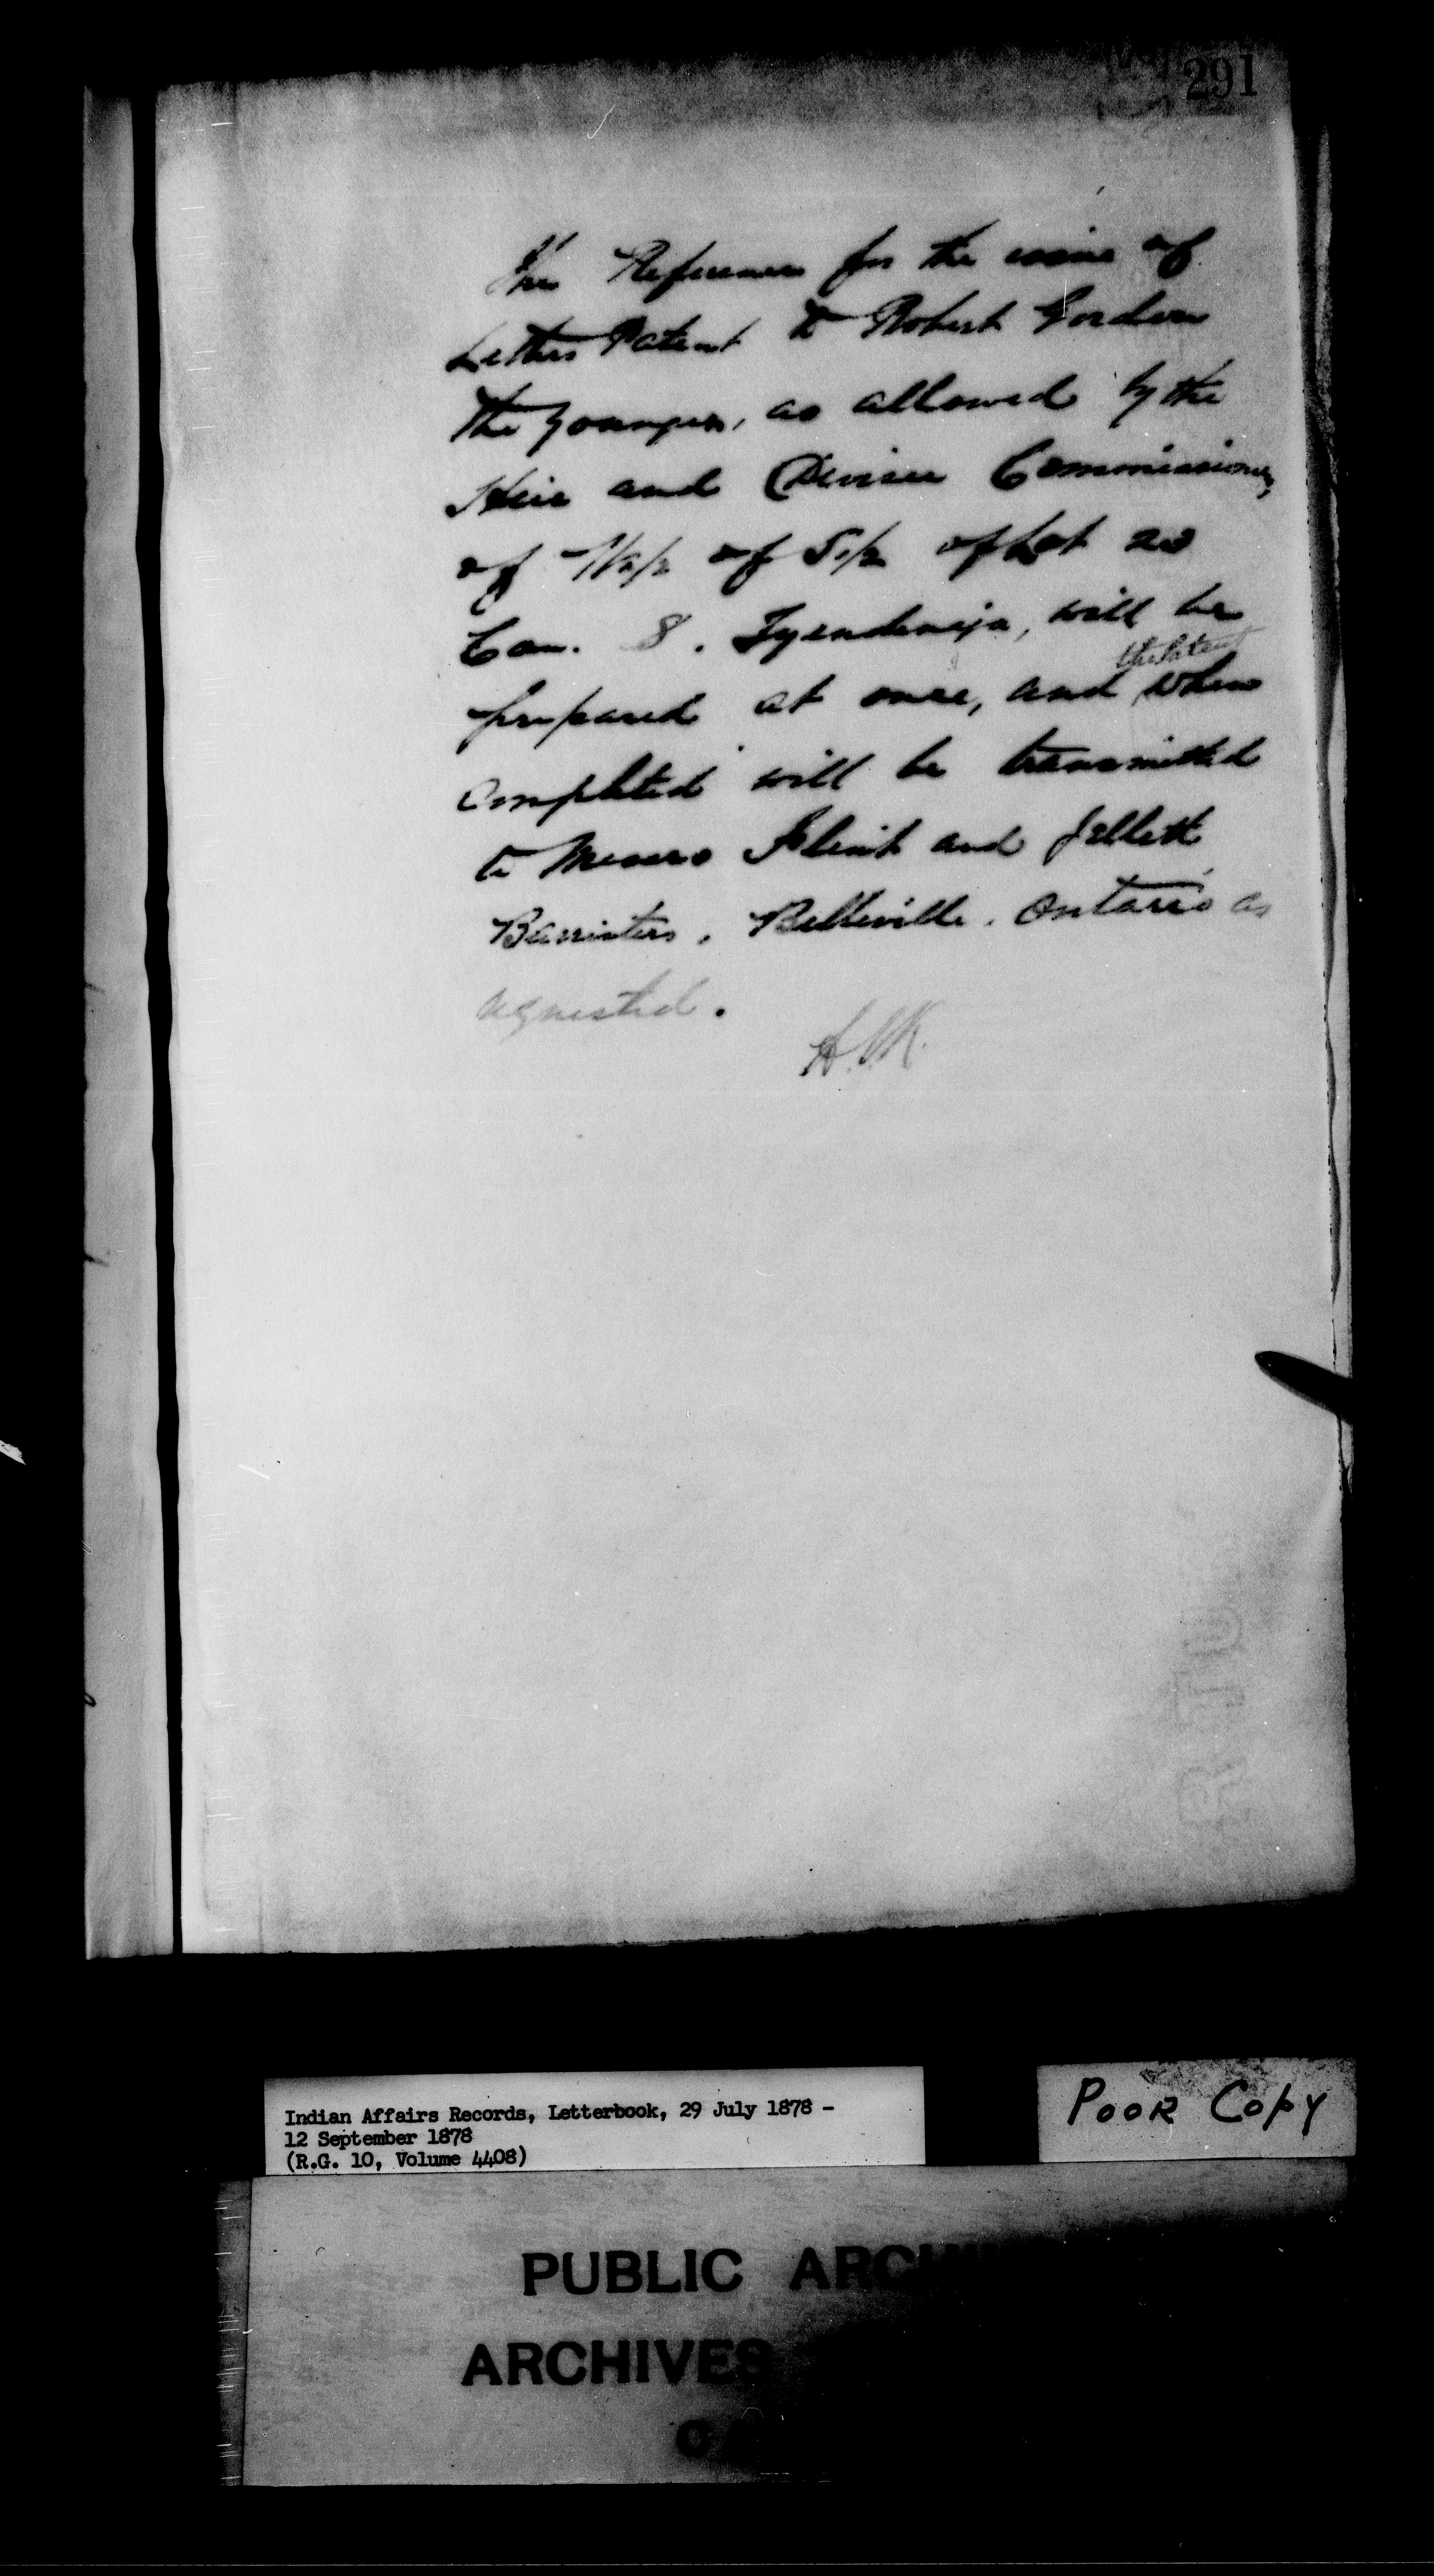 291
The Reference for the issue of
Letters Patent to Robert Gordon
the younger, as allowed by the
Heir and Devisee Commissioners,
of N 1/2 of S 1/2 of Lot 20
Con. 8. Tyendinaga, will be
the Patent
prepared at once, and when
completed will be transmitted
to Messrs Flint and Jellett
Barristers, Belleville. Ontario as
requested.
Indian Affairs Records, Letterbook, 29 July 1878 -
12 September 1878
(R.G. 10, Volume 4408)
POOR COPY
PUBLIC
ARCHIVES